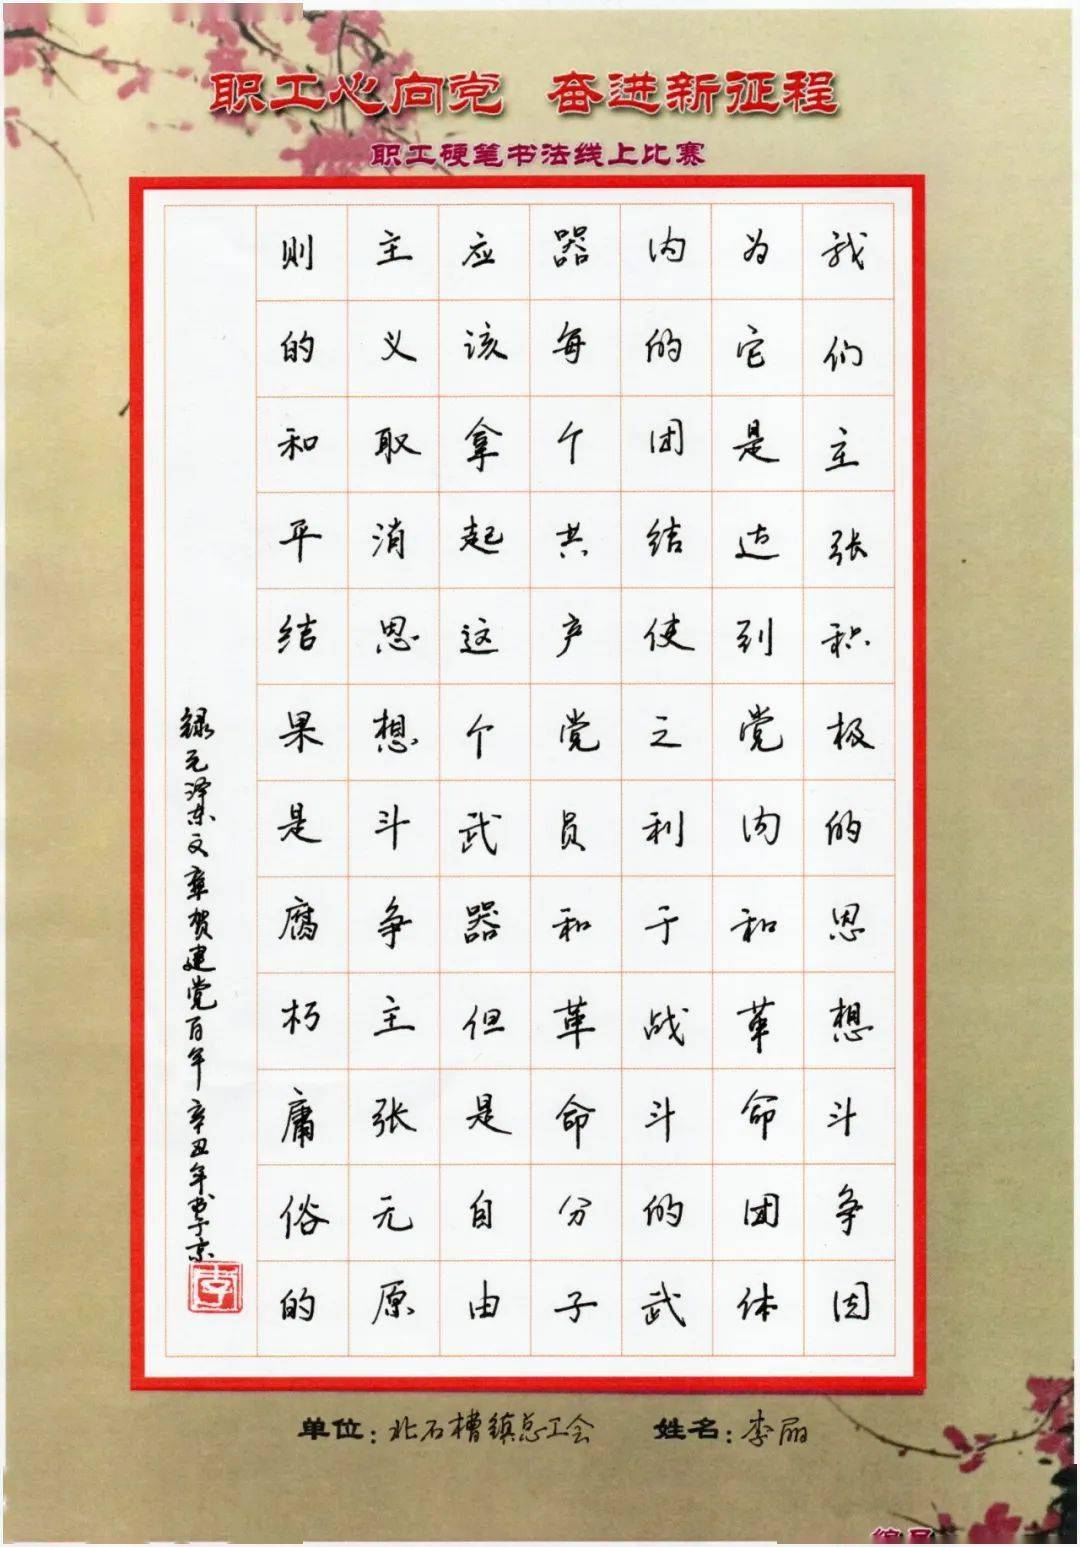 职工心向党 奋进新征程
职工硬笔书法线上比赛
我们主张积极的思想斗争因
为它是达到党内和革命团体
内的团结使之利于战斗的武
器每个共产党员和革命分子
应该拿起这个武器但是自由
主义取消思想斗争主张无原
则的和平结果是腐朽庸俗的
録毛泽东文章贺建党百年 辛丑年书于京
李
单位：北石槽镇总工会 姓名：李丽